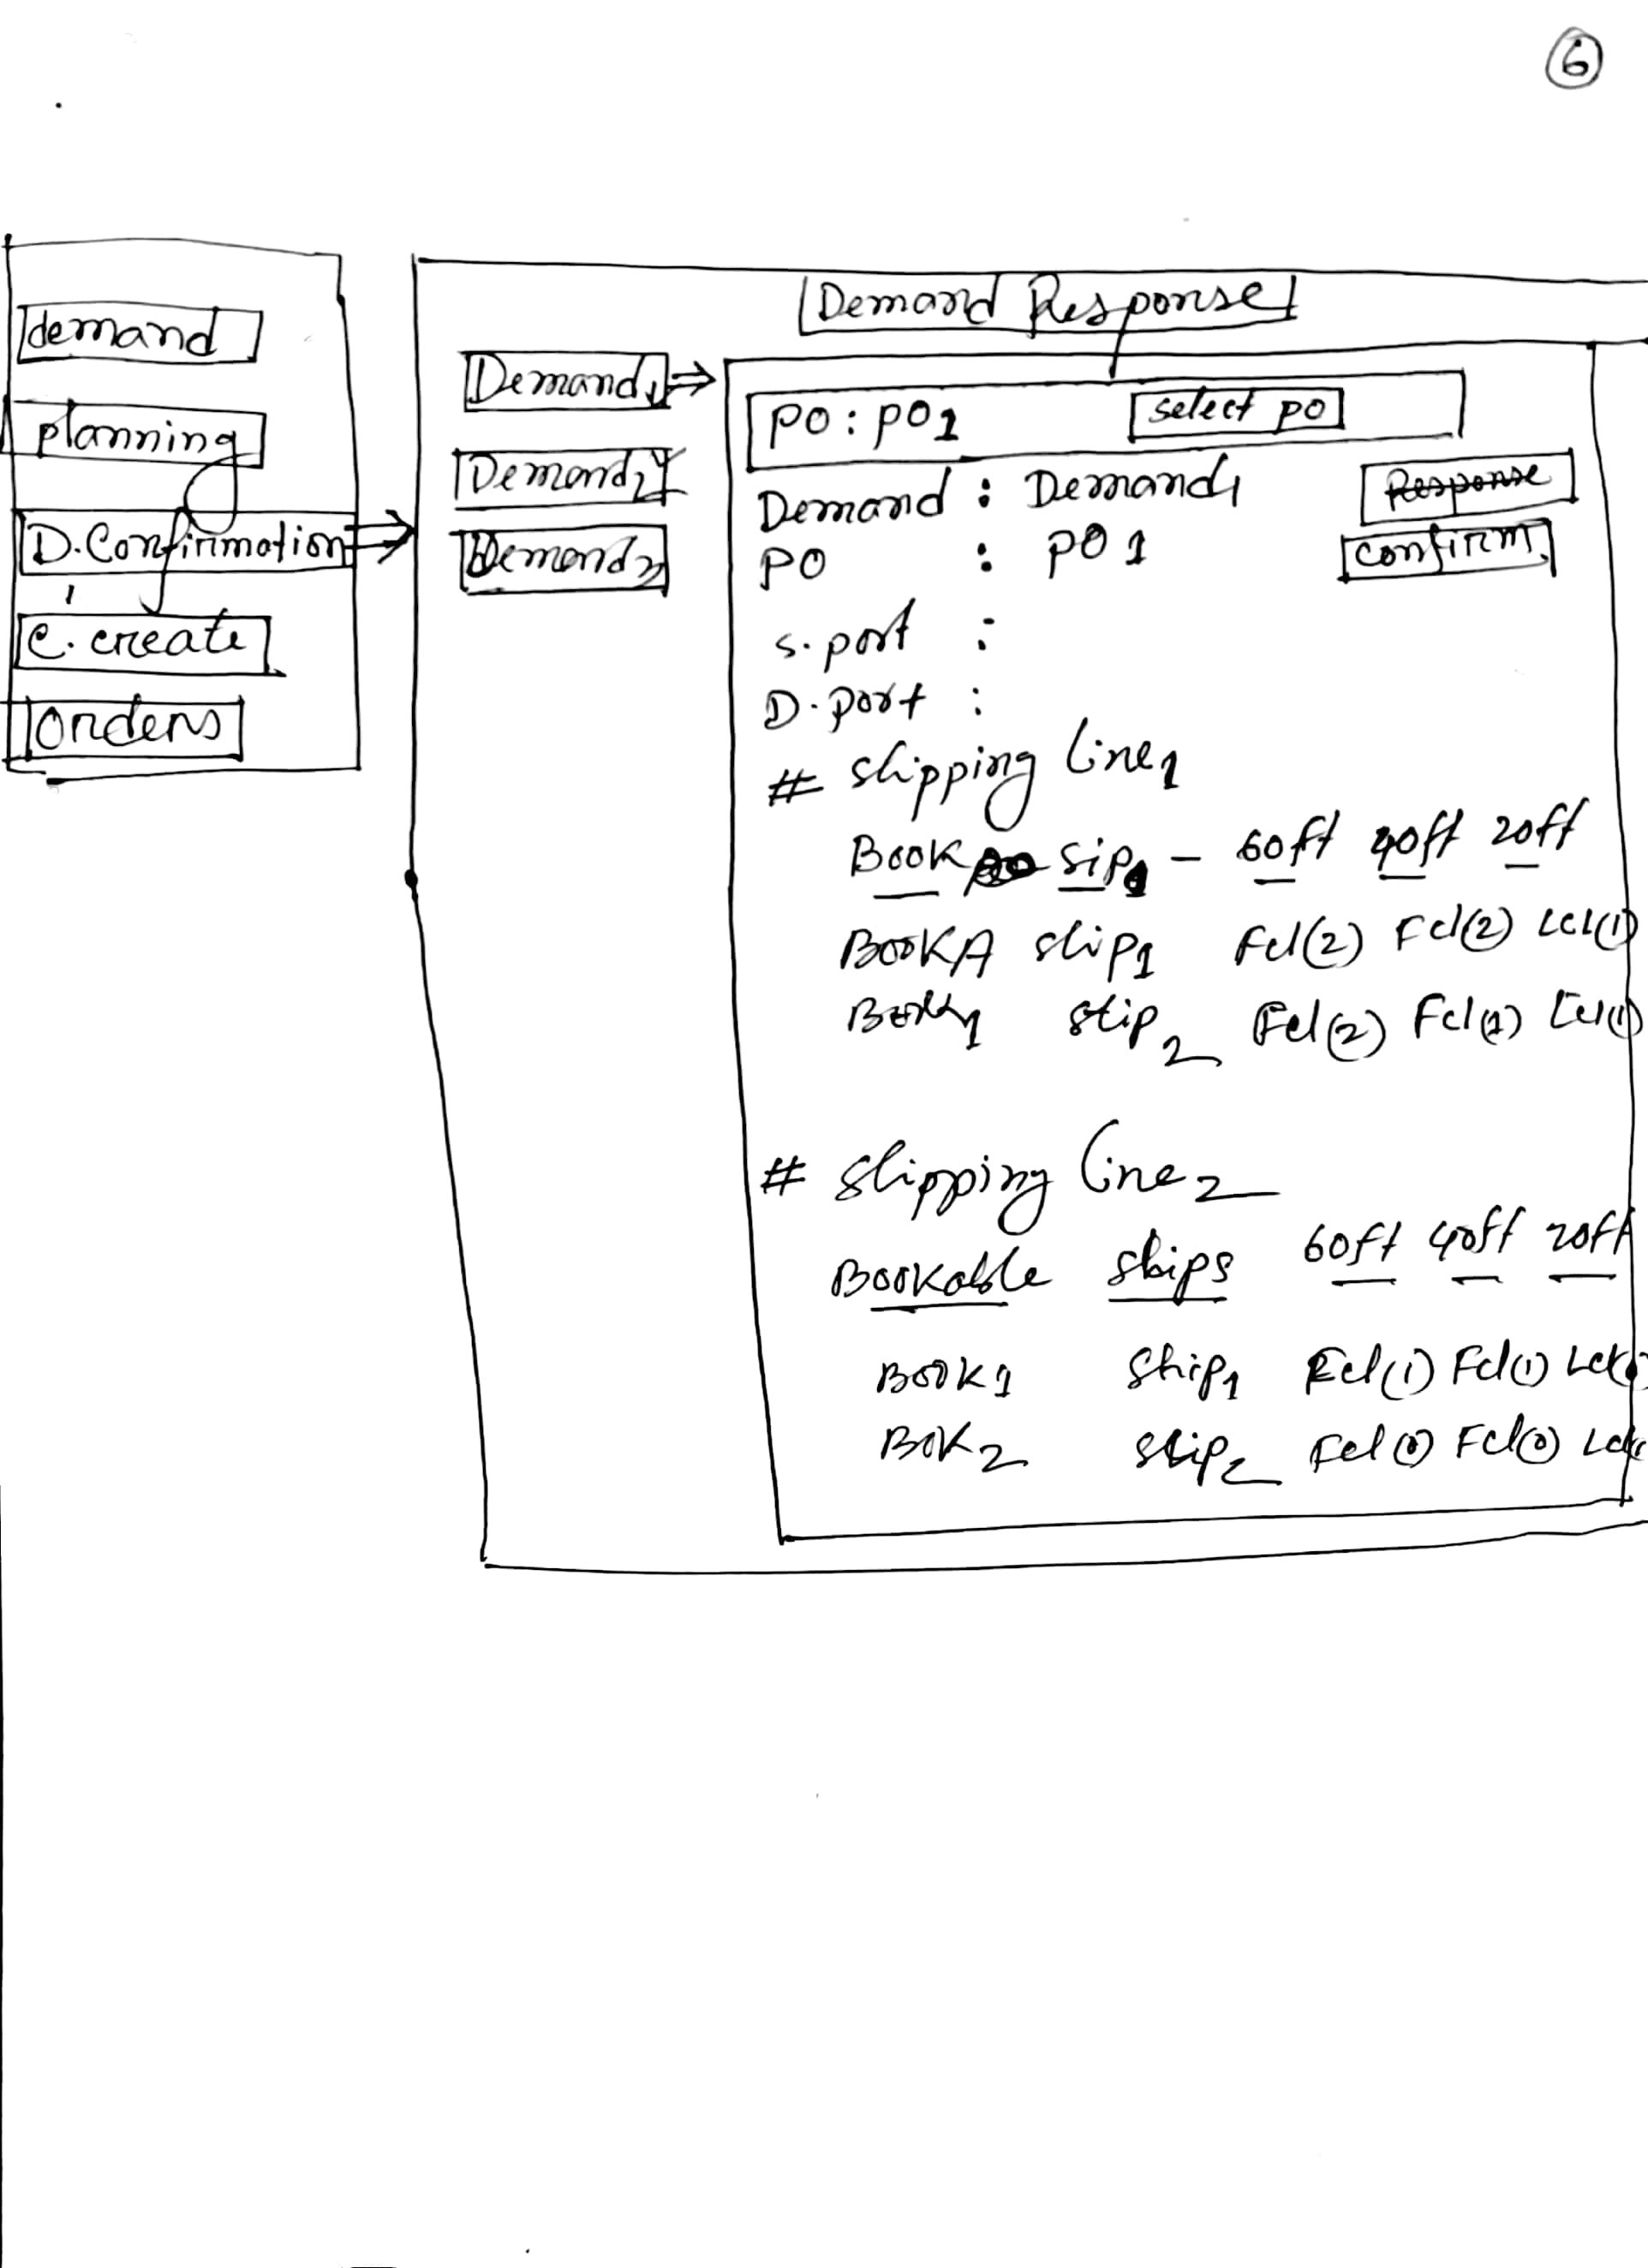 6
demand
planning
D. Confirmation
C. create
Orders
Demand Response
Demand1
Demand2
Demand3
PO : PO1
select po
Demand : Demand1
Response
PO : PO 1
confirm
S. port :
D. port :
# shipping line1
Book sip1 - 60ft 40ft 20ft
BOOKA ship1 Fcl(2) Fcl(2) LCL(1)
Book1 ship2 Fcl(2) Fcl(2) Lcl(1)
# shipping line2
Bookable ships 60ft 40ft 20ft
BOOK1 Ship1 Fcl(1) Fcl(1) Lcl
BOK2 ship2 Fcl(0) Fcl(0) Lcl